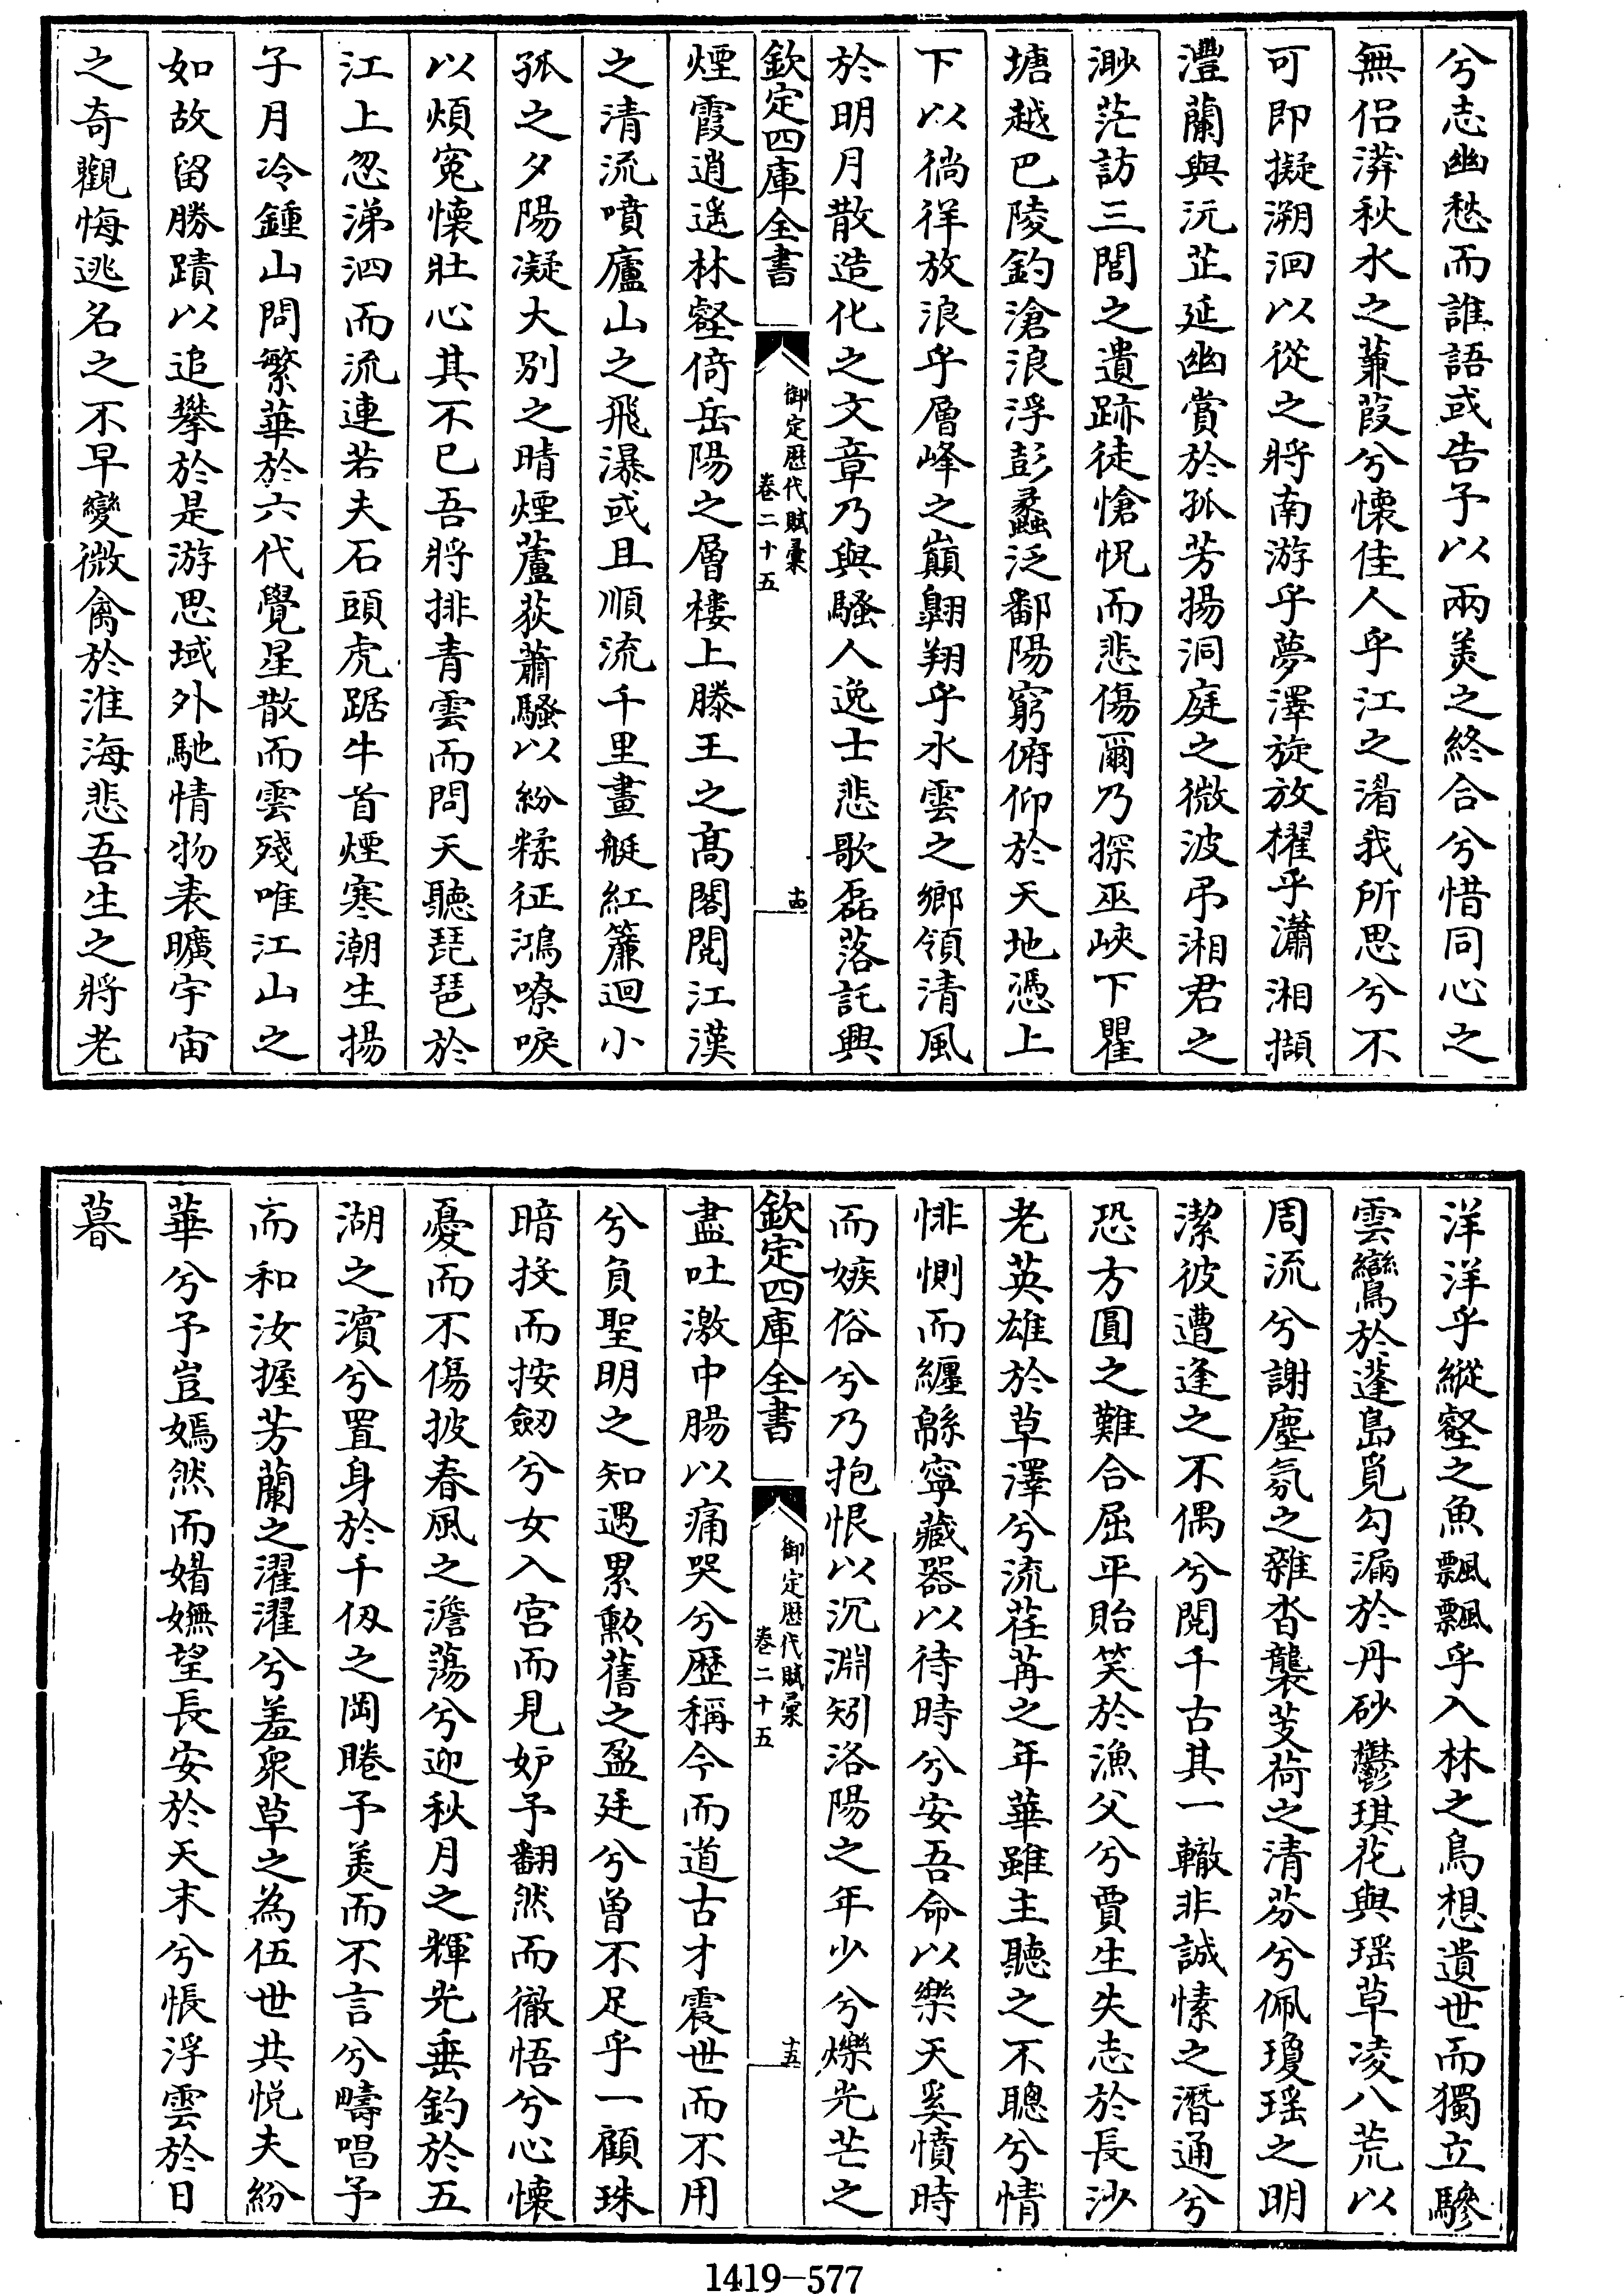 兮志幽愁而誰語或告予以兩美之終合兮惜同心之
無侣漭秋水之蒹葭兮懐佳人乎江之渚我所思兮不
可即擬溯洄以從之將南游乎夢澤旋放櫂乎瀟湘擷
澧蘭與沅芷延幽賞於孤芳揚洞庭之微波弔湘君之
渺茫訪三閭之遺跡徒愴怳而悲傷爾乃探巫峽下瞿
塘越巴陵釣滄浪浮彭蠡泛鄱陽窮俯仰於天地憑上
下以徜徉放浪乎層峰之巔翺翔乎水雲之鄉領清風
於明月散造化之文章乃與騷人逸士悲歌磊落託興
欽定四庫全書
御定歴代賦彙
卷二十五
十四
煙霞逍遥林壑倚岳陽之層樓上滕王之髙閣閲江漢
之清流噴廬山之飛瀑或且順流千里畫艇紅簾迴小
孤之夕陽凝大别之晴煙蘆荻蕭騷以紛糅征鴻嘹唳
以煩寃懐壯心其不已吾將排青雲而問天聽琵琶於
江上忽涕泗而流連若夫石頭虎踞牛首煙寒潮生揚
子月冷鍾山問繁華於六代覺星散而雲殘唯江山之
如故留勝蹟以追攀於是游思域外馳情物表曠宇宙
之奇觀悔逃名之不早變微禽於淮海悲吾生之將老
洋洋乎縱壑之魚飄飄乎入林之鳥想遺世而獨立驂
雲鸞於蓬島覓勾漏於丹砂鬱琪花與瑶草凌八荒以
周流兮謝塵氛之雜沓襲芰荷之清芬兮佩瓊瑶之明
潔彼遭逢之不偶兮閲千古其一轍非誠愫之潛通兮
恐方圓之難合屈平貽笑於漁父兮賈生失志於長沙
老英雄於草澤兮流荏苒之年華雖主聽之不聰兮情
悱惻而纏緜寧藏器以待時兮安吾命以樂天奚憤時
而嫉俗兮乃抱恨以沉淵矧洛陽之年少兮爍光芒之
欽定四庫全書
御定歴代賦彙
卷二十五
十五
盡吐激中腸以痛哭兮歴稱今而道古才震世而不用
兮負聖明之知遇累勲舊之盈廷兮曽不足乎一顧珠
暗投而按劒兮女入宫而見妒予翻然而徹悟兮心懐
憂而不傷披春風之澹蕩兮迎秋月之輝光垂釣於五
湖之濵兮置身於千仭之岡睠予美而不言兮疇唱予
而和汝握芳蘭之濯濯兮羞衆草之為伍世共悦夫紛
華兮予豈嫣然而媚嫵望長安於天末兮悵浮雲於日
暮
1419-577